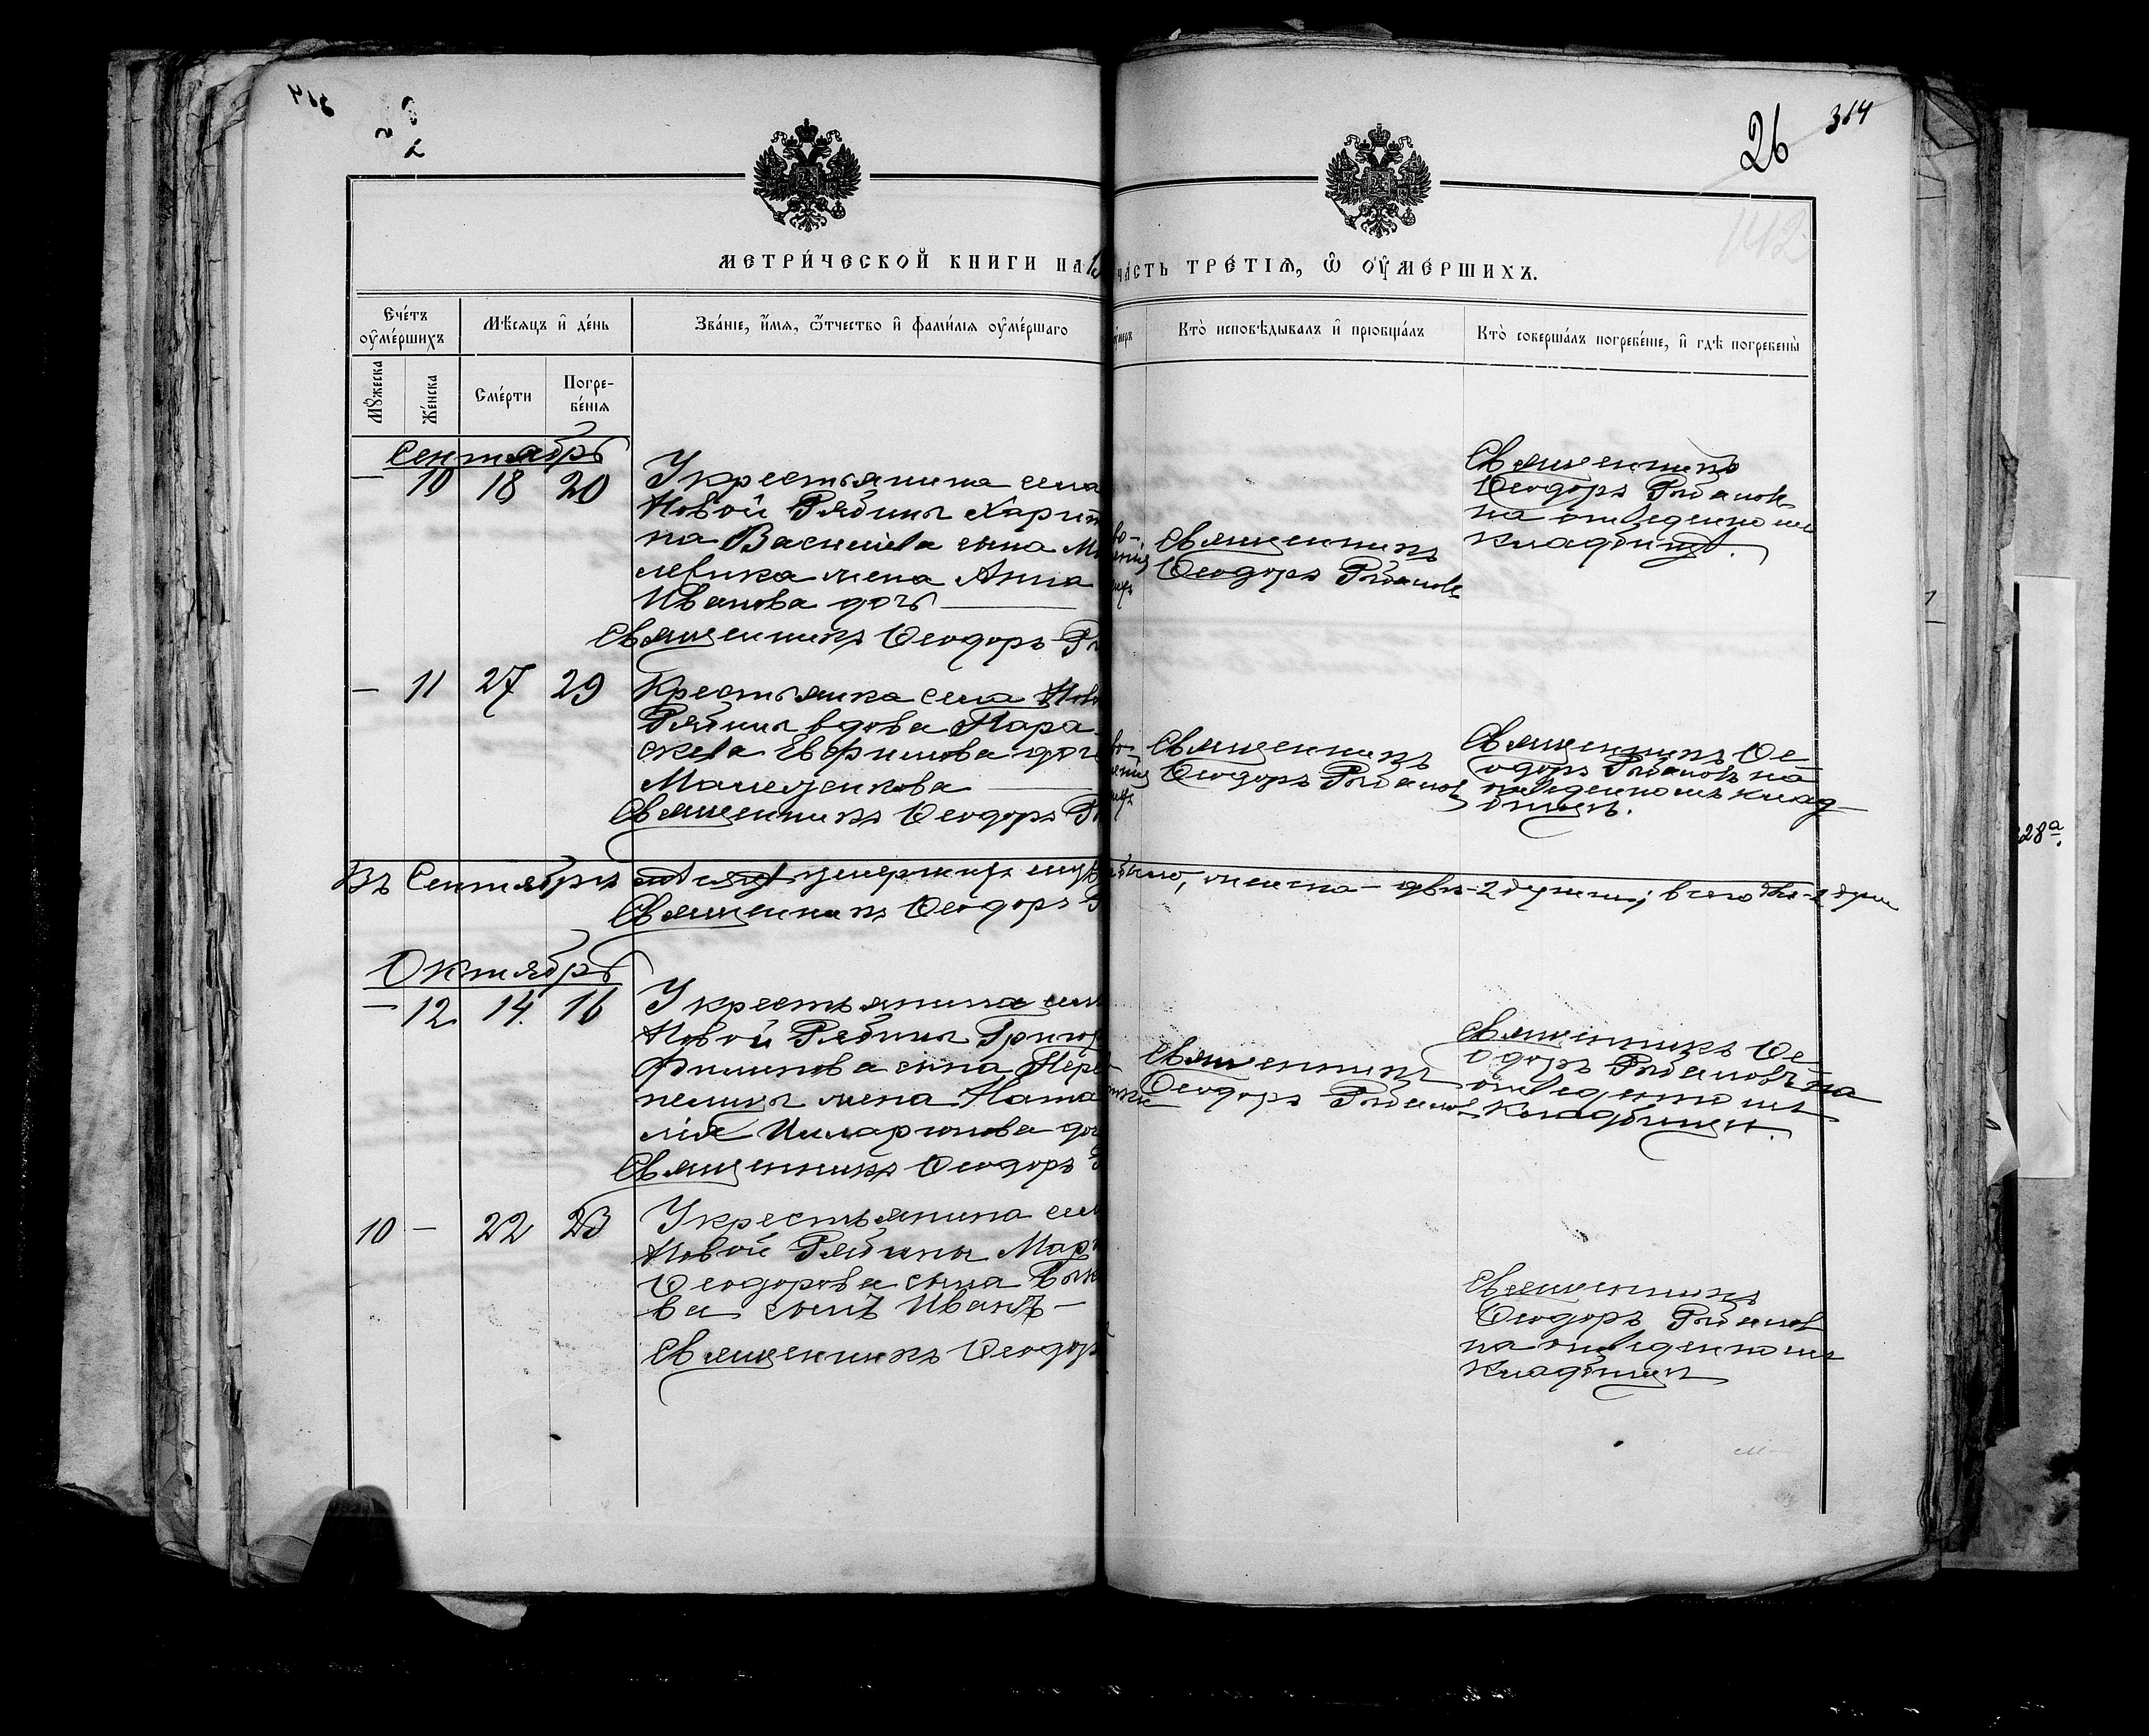 314
26
112
МЕТРИ́ЧЕСКОЙ КНИГИ НА 1
ЧА́СТЬ ТРЕ́ТІѦ, Ѡ ОУ҆МЕ́РШИХЪ.
Сче́тъ оу҆ме́ршихъ
Мѣ́сяцъ и҆ де́нь
Зва́нїе, и҆́мя, ѻ҆́тчество и҆ фами́лїя оу҆ме́ршаго
Кто̀ исповѣ́дывалъ и҆ прїобща́лъ
Кто̀ соверша́лъ погребе́нїе, и҆ гдѣ̀ погребены̀
Мꙋ́жеска
Же́нска
Сме́рти
Погре-
бе́нїя
Сентябрь
— 10 18 20
У крестьянина села
Новой Рябины Харито
на Васильева сына
жена Анна
Иванова дочь
Священникъ Ѳеодоръ
Священникъ
Ѳеодоръ Рыбалов
Священникъ
Ѳеодоръ Рыбалов
на отведенномъ
кладбищѣ.
— 11 27 29
Крестьянка села Ново
Рябины вдова Пара-
скева Евфимова дочь
Священникъ Ѳеодоръ
Священникъ
Ѳеодоръ Рыбалов
Священникъ Ѳе-
одоръ Рыбаловъ на
отведенномъ клад-
бищѣ.
Въ Сентябрѣ мѣсяцѣ умершихъ муж было, женска — двѣ — 2 души; всего двѣ — 2 души
Священникъ Ѳеодоръ
Октябрь
— 12 14 16
У крестьянина сел
Новой Рябины Григор
Филипова сына Пере
пелицы жена Ната
лія Иларіонова доч
Священникъ Ѳеодоръ
Священникъ
Ѳеодоръ Рыбалов
Священникъ Ѳе-
одоръ Рыбаловъ на
отведенномъ
кладбищѣ.
10 — 22 23
У крестьянина сел
Новой Рябины Мар
Ѳеодорова сына Вык
ва сынъ Иванъ —
Священникъ Ѳеодор
Священникъ
Ѳеодоръ Рыбалов
на отведенномъ
кладбищѣ
28а.